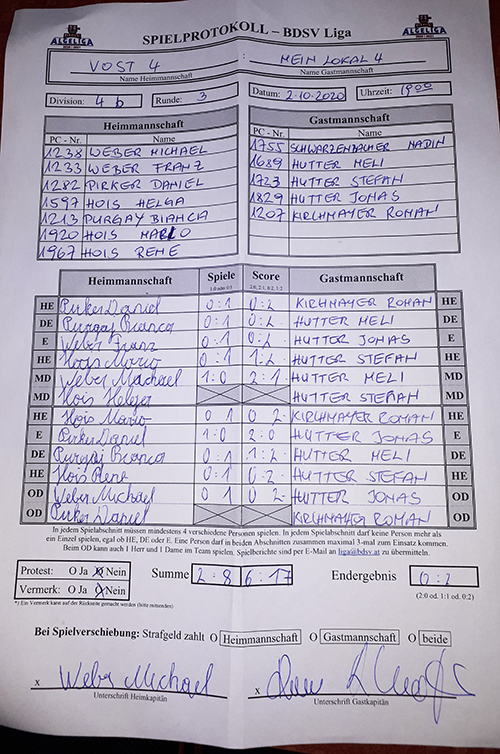 ALGELIGA SPIELPROTOKOLL – BDSV Liga ALGELIGA
VOST 4 : MEIN LOKAL 4
Name Heimmannschaft Name Gastmannschaft
Division: 4 b Runde: 3 Datum: 2.10.2020 Uhrzeit: 19 00
Heimmannschaft Gastmannschaft
PC - Nr. Name PC - Nr. Name
1238 WEBER MICHAEL 1755 SCHWARZENBACHER NADIN
1233 WEBER FRANZ 1689 HUTTER MELI
1282 PIRKER DANIEL 1723 HUTTER STEFAN
1597 HOIS HELGA 1829 HUTTER JONAS
1213 PURGAY BIANCA 1207 KIRCHMAYER ROMAN
1920 HOIS MARIO
1967 HOIS RENE
Heimmannschaft Spiele Score Gastmannschaft
1:0 oder 0:1 2:0, 2:1, 0:2, 1:2
HE Pirker Daniel 0:1 0:2 KIRCHMAYER ROMAN HE
DE Purgaj Bianca 0:1 0:2 HUTTER MELI DE
E Weber Franz 0:1 0:2 HUTTER JONAS E
HE Hois Mario 0:1 1:2 HUTTER STEFAN HE
MD Weber Michael 1:0 2:1 HUTTER MELI MD
MD Hois Helga HUTTER STEFAN MD
HE Hois Mario 0 1 0 2 KIRCHMAYER ROMAN HE
E Pirker Daniel 1:0 2:0 HUTTER JONAS E
DE Purgaj Bianca 0:1 1:2 HUTTER MELI DE
HE Hois Rene 0:1 0:2 HUTTER STEFAN HE
OD Weber Michael 0 1 0 2 HUTTER JONAS OD
OD Pirker Daniel KIRCHMAYER ROMAN OD
In jedem Spielabschnitt müssen mindestens 4 verschiedene Personen spielen. In jedem Spielabschnitt darf keine Person mehr als
ein Einzel spielen, egal ob HE, DE oder E. Eine Person darf in beiden Abschnitten zusammen maximal 3-mal zum Einsatz kommen.
Beim OD kann auch 1 Herr und 1 Dame im Team spielen. Spielberichte sind per E-Mail an liga@bdsv.at zu übermitteln.
Protest: O Ja O Nein Summe 2:8 6:17 Endergebnis 0:2
Vermerk: O Ja O Nein (2:0 od. 1:1 od. 0:2)
*) Ein Vermerk kann auf der Rückseite gemacht werden (bitte ankreuzen)
Bei Spielverschiebung: Strafgeld zahlt O Heimmannschaft O Gastmannschaft O beide
x Weber Michael x
Unterschrift Heimkapitän Unterschrift Gastkapitän